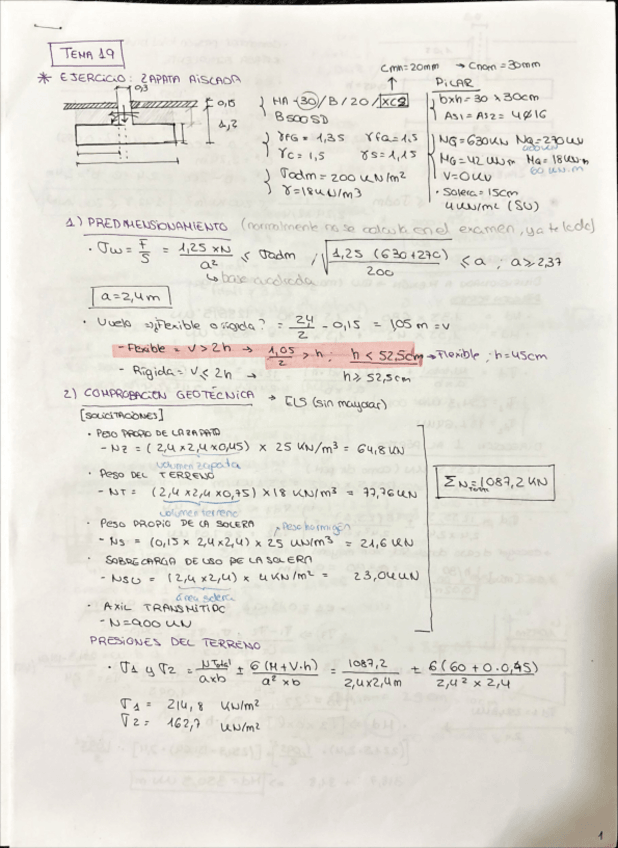 TEMA 19
* EJERCICIO: ZAPATA AISLADA
0,3
0,15
1,2
HA-30/B/20/XC2
B500SD
γG = 1,35 γQ=1,5
γC = 1,5 γS = 1,15
σadm = 200 KN/m²
γ=18KN/m³
Cmin=20mm → Cnom=30mm
PILAR
bxh = 30 x 30cm
As1 = As2 = 4Ø16
NG=630KN NQ=270KN
MG=42KN·m MQ=18KN·m
60 KN·m
V=0KN
· Solera = 15cm
4KN/m² (SU)
1) PREDIMENSIONAMIENTO (normalmente no se calcula en el examen, ya te lo da)
· σw = F/S = 1,25 x N / a² ≤ σadm ; √(1,25 (630+270) / 200) ≤ a ; a ≥ 2,37
↳ base cuadrada
a=2,4m
· Vuelo ⇒ ¿Flexible o rígida? = 2,4/2 - 0,15 = 1,05 m = v
- Flexible = v > 2h → 1,05/2 > h ; h < 52,5cm → Flexible, h=45cm
- Rígida = v ≤ 2h → h ≥ 52,5cm
2) COMPROBACIÓN GEOTÉCNICA → ELS (sin mayorar)
[SOLICITACIONES]
· PESO PROPIO DE LA ZAPATA
- NZ = (2,4 x 2,4 x 0,45) x 25 KN/m³ = 64,8 KN
volumen zapata
· PESO DEL TERRENO
- NT = (2,4 x 2,4 x 0,75) x 18 KN/m³ = 77,76 KN
volumen terreno
ΣN = 1087,2 KN
· PESO PROPIO DE LA SOLERA
Peso hormigón
- NS = (0,15 x 2,4 x 2,4) x 25 KN/m³ = 21,6 KN
· SOBRECARGA DE USO DE LA SOLERA
- NSU = (2,4 x 2,4) x 4 KN/m² = 23,04 KN
área solera
· AXIL TRANSMITIDO
- N = 900 KN
PRESIONES DEL TERRENO
· σ1 y σ2 = NTotal / axb ± 6(M+V·h) / a² x b = 1087,2 / 2,4x2,4m ± 6(60+0·0,45) / 2,4² x 2,4
σ1 = 214,8 KN/m²
σ2 = 162,7 KN/m²
1